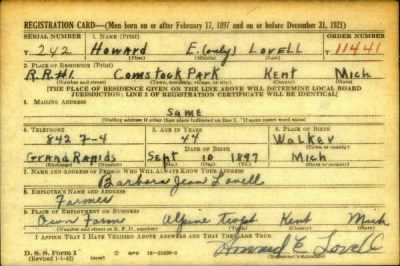 REGISTRATION CARD—(Men born on or after February 17, 1897 and on or before December 31, 1921)
SERIAL NUMBER 1. NAME (Print) ORDER NUMBER
T 242 Howard E. (only) Lovell 11441
(First) (Middle) (Last)
2. PLACE OF RESIDENCE (Print)
R.R.#1. Comstock Park Kent Mich
(Number and street) (Town, township, village, or city) (County) (State)
[THE PLACE OF RESIDENCE GIVEN ON THE LINE ABOVE WILL DETERMINE LOCAL BOARD
JURISDICTION; LINE 2 OF REGISTRATION CERTIFICATE WILL BE IDENTICAL]
3. MAILING ADDRESS
Same
[Mailing address if other than place indicated on line 2. If same insert word same]
4. TELEPHONE 5. AGE IN YEARS 6. PLACE OF BIRTH
842 7-4 44 Walker
DATE OF BIRTH (Town or county)
Grand Rapids Sept 10 1897 Mich
(Exchange) (Number) (Mo.) (Day) (Yr.) (State or country)
7. NAME AND ADDRESS OF PERSON WHO WILL ALWAYS KNOW YOUR ADDRESS
Barbara Jean Lovell
8. EMPLOYER'S NAME AND ADDRESS
Farmer
9. PLACE OF EMPLOYMENT OR BUSINESS
Own Farm Alpine Kent Mich
(Number and street or R. F. D. number) (Town) (County) (State)
I AFFIRM THAT I HAVE VERIFIED ABOVE ANSWERS AND THAT THEY ARE TRUE.
D. S. S. Form 1 Howard E Lovell
(Revised 1-1-42)